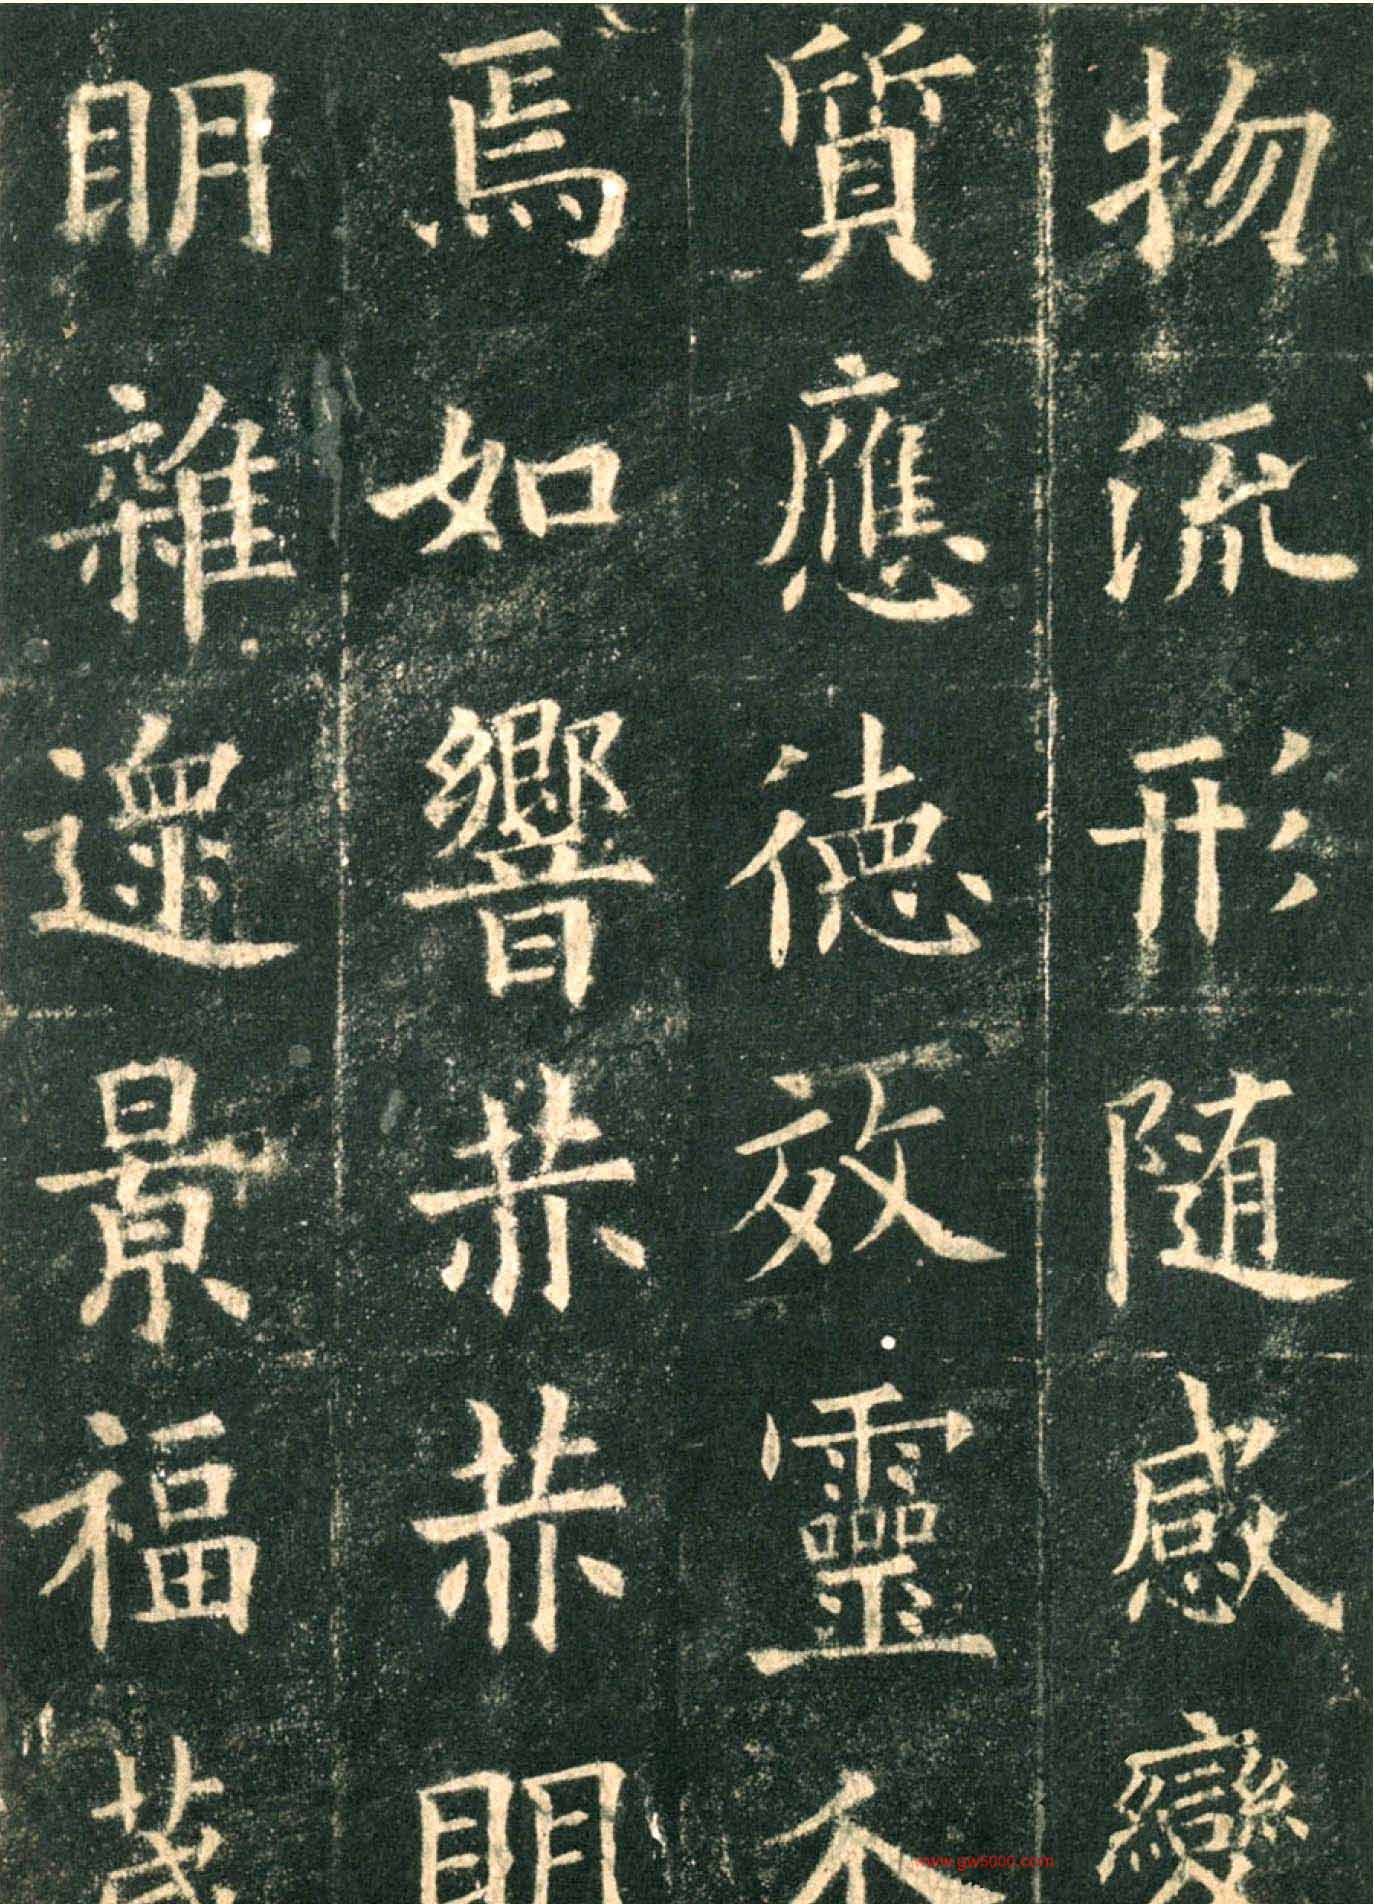 物流形隨感變
質應德效靈介
焉如響赫赫眀
眀雜遝景福葳
www.gw5000.com